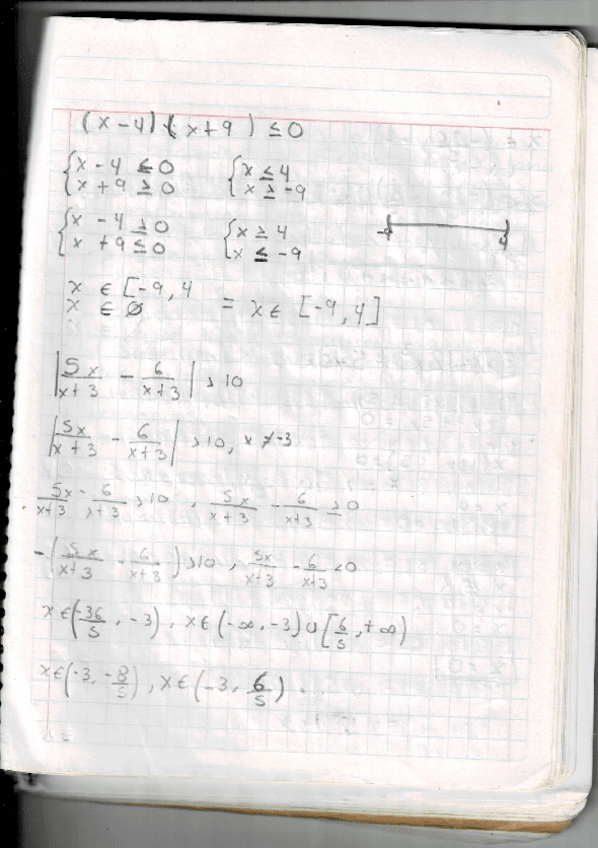 (x - 4) (x + 9) ≤ 0
{x - 4 ≤ 0 {x ≤ 4
{x + 9 ≥ 0 {x ≥ -9
{x - 4 ≥ 0 {x ≥ 4
{x + 9 ≤ 0 {x ≤ -9
-9 4
x ∈ [-9, 4
x ∈ ∅ = x ∈ [-9, 4]
|5x/x+3 - 6/x+3| > 10
|5x/x+3 - 6/x+3| > 10, x ≠ -3
5x/x+3 - 6/x+3 > 10, 5x/x+3 - 6/x+3 ≥ 0
-(5x/x+3 - 6/x+3) > 10, 5x/x+3 - 6/x+3 < 0
x ∈ (-36/5, -3), x ∈ (-∞, -3) ∪ [6/5, +∞)
x ∈ (-3, -8/5), x ∈ (-3, 6/5)